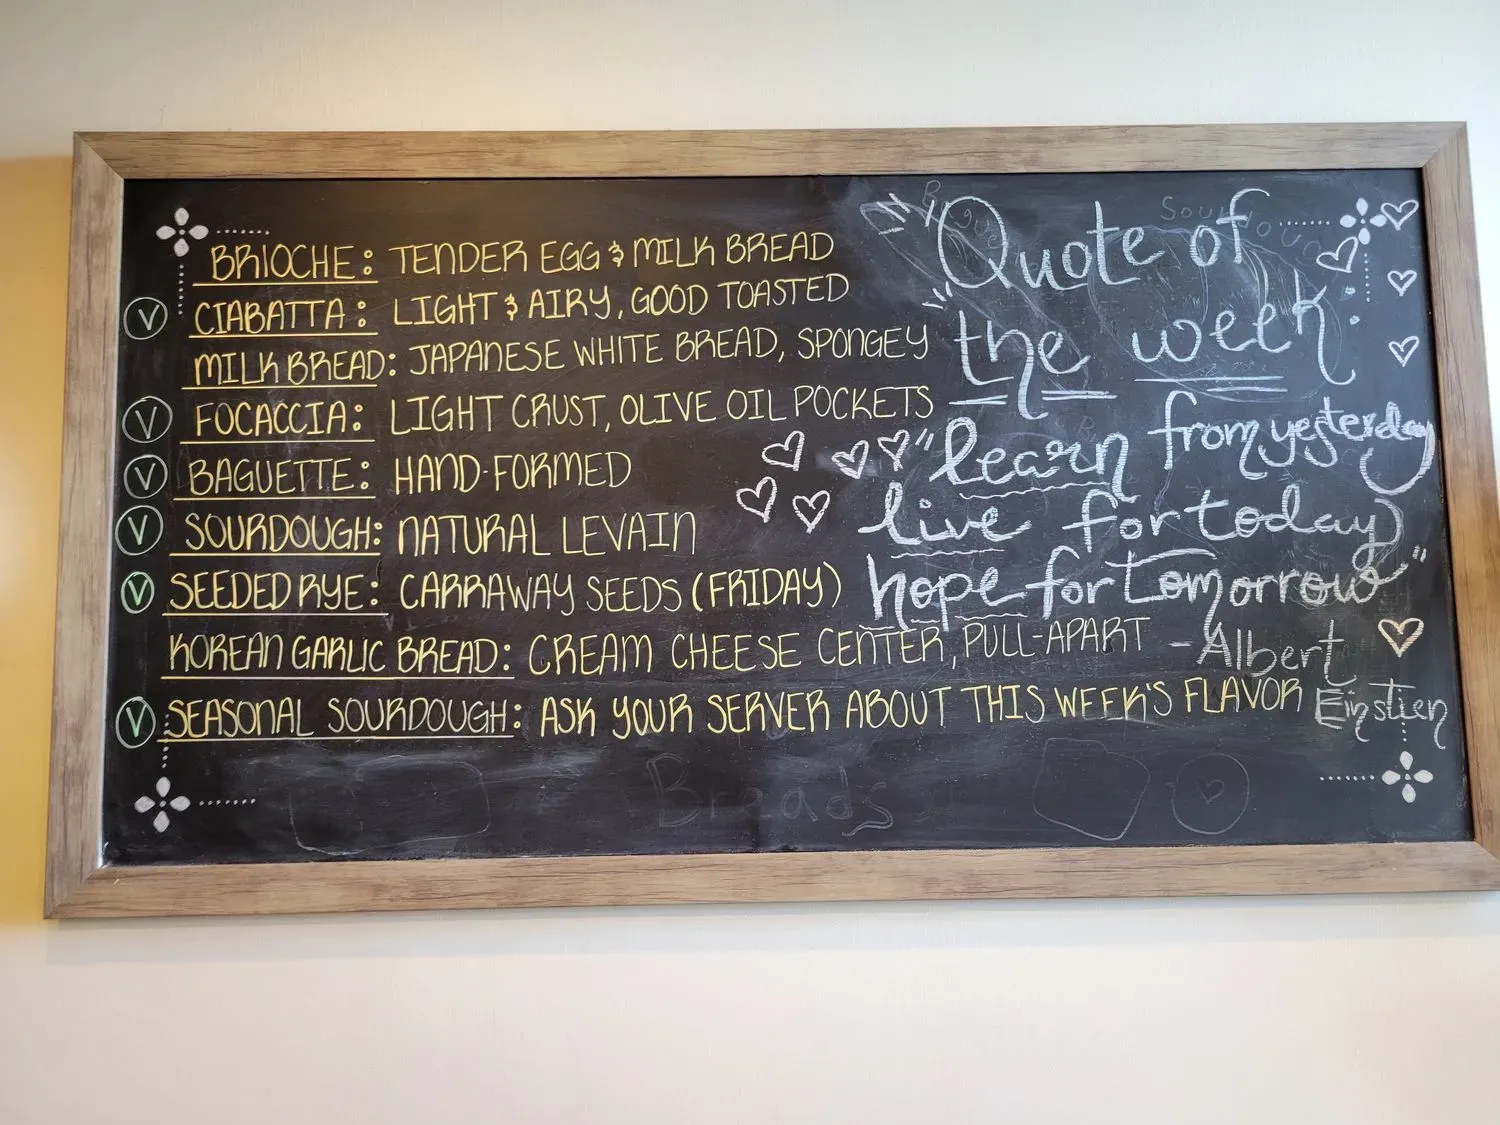 BRIOCHE: TENDER EGG & MILK BREAD
V CIABATTA: LIGHT & AIRY, GOOD TOASTED
MILK BREAD: JAPANESE WHITE BREAD, SPONGEY
V FOCACCIA: LIGHT CRUST, OLIVE OIL POCKETS
V BAGUETTE: HAND-FORMED
V SOURDOUGH: NATURAL LEVAIN
V SEEDED RYE: CARRAWAY SEEDS (FRIDAY)
KOREAN GARLIC BREAD: CREAM CHEESE CENTER, PULL-APART
V SEASONAL SOURDOUGH: ASK YOUR SERVER ABOUT THIS WEEK'S FLAVOR
Quote of
the week:
"learn from yesterday
live for today
hope for tomorrow"
-Albert
Einstien
Sourdough
Breads